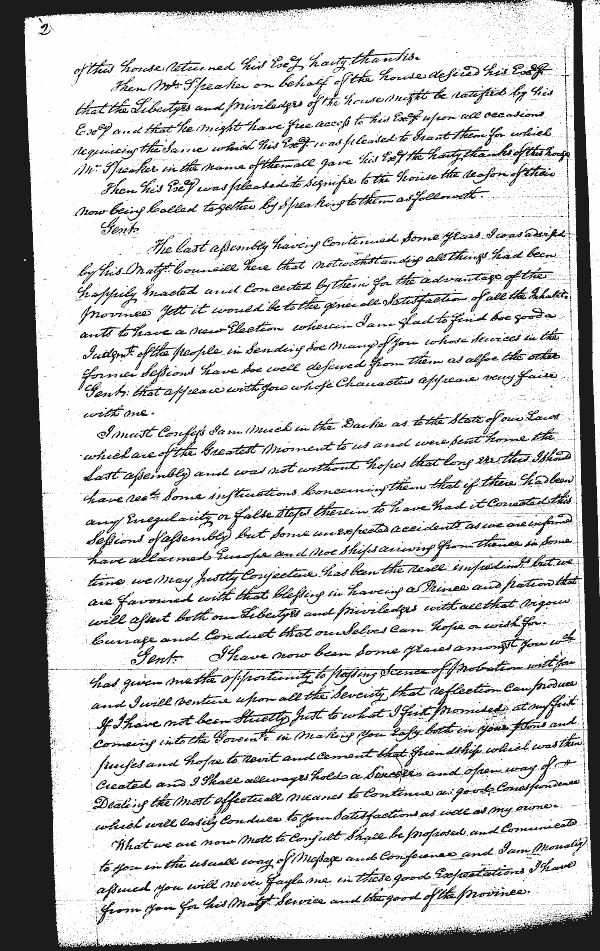 2
of this house returned his Excy harty thanks.
Then Mr Speaker on behalf of the house desired his Excy
that the Libertyes and priviledges of the house might be ratifyed by his
Excy and that he might have free access to his Excy upon all occasions
requireing the Same which his Excy was pleased to Grant them for which
Mr Speaker in the name of them all gave his Excy the harty thanks of this house
Then his Excy was pleased to Signifie to the house the reason of their
now being Called together by Speaking to them as followeth.
Gent:
The last assembly having Continued Some years I was advised
by his Matys Councill here that notwithstanding all things had been
happily Enacted and Concerted by them for the advantage of the
Province yett it would be to the generall Satisfaction of all the Inhabit-
ants to have a new Election wherein I am glad to find soe good a
Judgmt of the people in Sending soe many of you whose Services in the
former Sessions have soe well deserved from them as alsoe the other
Gents: that appeare with you whose Characters appeare very faire
with me.
I must Confess I am much in the Darke as to the State of our Laws
which are of the Greatest Moment to us and were sent home the
Last assembly and was not without hopes that long ere this I should
have rect Some instructions Concerning them that if there had been
any Irregularity or false Steps therein to have had it Corrected this
Sessions of assembly but Some unexpected accidents as we are informed
have allarmed Europe and noe Ships arriving from thence in Some
time we may Justly Conjecture has been the reall impedimt but we
are favoured with that blessing in having a Prince and Nation that
will assert both our Libertyes and priviledges with all that vigour
Currage and Conduct that ourselves Can hope or wish for.
Gent: I have now been Some yeares amongst you wch
has given me the opportunity to passing Scence of Probation with you
and I will venture upon all the Severity that reflection Can produce
If I have not been Strictly Just to what I first promised at my first
comeing into the Govermt in making you Easy both in your persons and
purses and hope to revit and cement that friendship which was then
Created and I Shall allwayes hold a Sincere and open way of
Dealing the most effectuall meanes to Continue a good Correspondence
which will Easily Conduce to your Satisfactions as well as my owne.
What we are now Mett to Consult Shall be proposed and Comunicated
to you in the usuall way of Message and Conference and I am Morally
assured you will never fayle me in those good Expectations I have
from you for his Matys Service and the good of the Province.